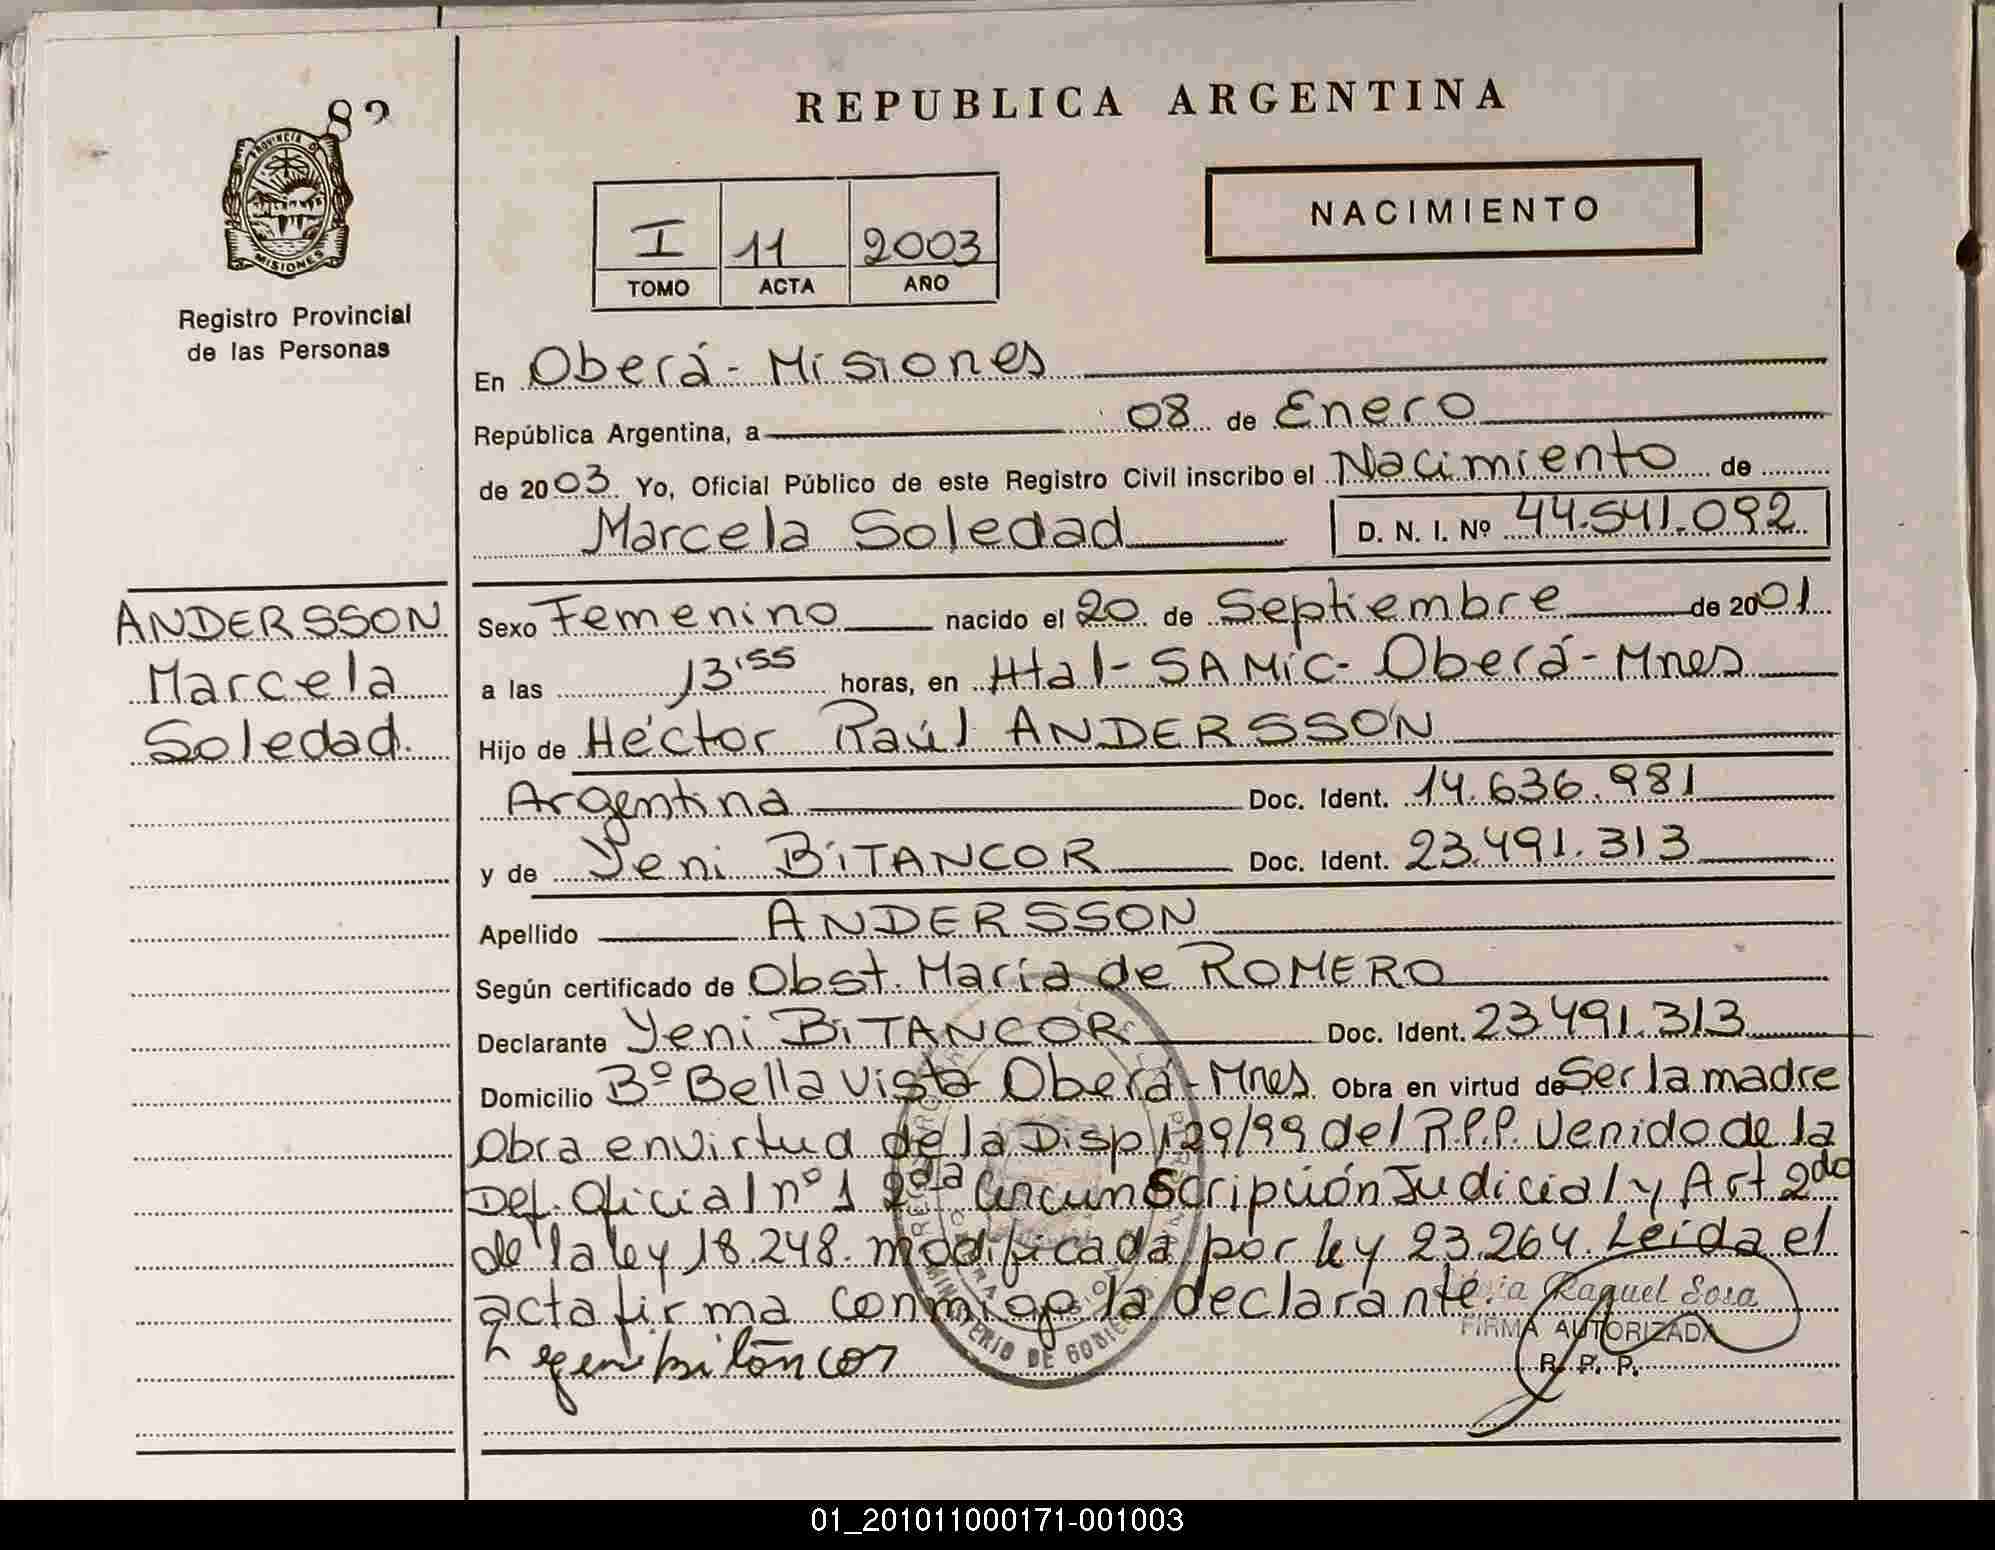 89
PROVINCIA DE
MISIONES
Registro Provincial
de las Personas
REPUBLICA ARGENTINA
NACIMIENTO
I 11 2003
TOMO ACTA AÑO
En Oberá - Misiones
República Argentina, a 08 de Enero
de 2003 Yo, Oficial Público de este Registro Civil inscribo el Nacimiento de
Marcela Soledad D. N. I. Nº 44.541.092
ANDERSSON
Marcela
Soledad.
Sexo Femenino nacido el 20 de Septiembre de 2001
a las 13'55 horas, en Htal - SAMIC - Oberá - Mnes
Hijo de Héctor Raúl ANDERSSON
Argentina Doc. Ident. 14.636.981
y de Yeni BITANCOR Doc. Ident. 23.491.313
Apellido ANDERSSON
Según certificado de Obst. María de ROMERO
Declarante Yeni BITANCOR Doc. Ident. 23.491.313
Domicilio Bº Bella Vista Oberá - Mnes Obra en virtud de Ser la madre
Obra en virtud de la Disp 129/99 del R.P.P. Venido de la
Def. Oficial nº 1 2da Circunscripción Judicial y Art 2do
de la ley 18.248. modificada por ley 23.264. Leída el
acta firma conmigo la declarante.
Raquel Sosa
FIRMA AUTORIZADA
R. P. P.
yeni bitancor
MINISTERIO DE GOBIERNO
01_201011000171-001003